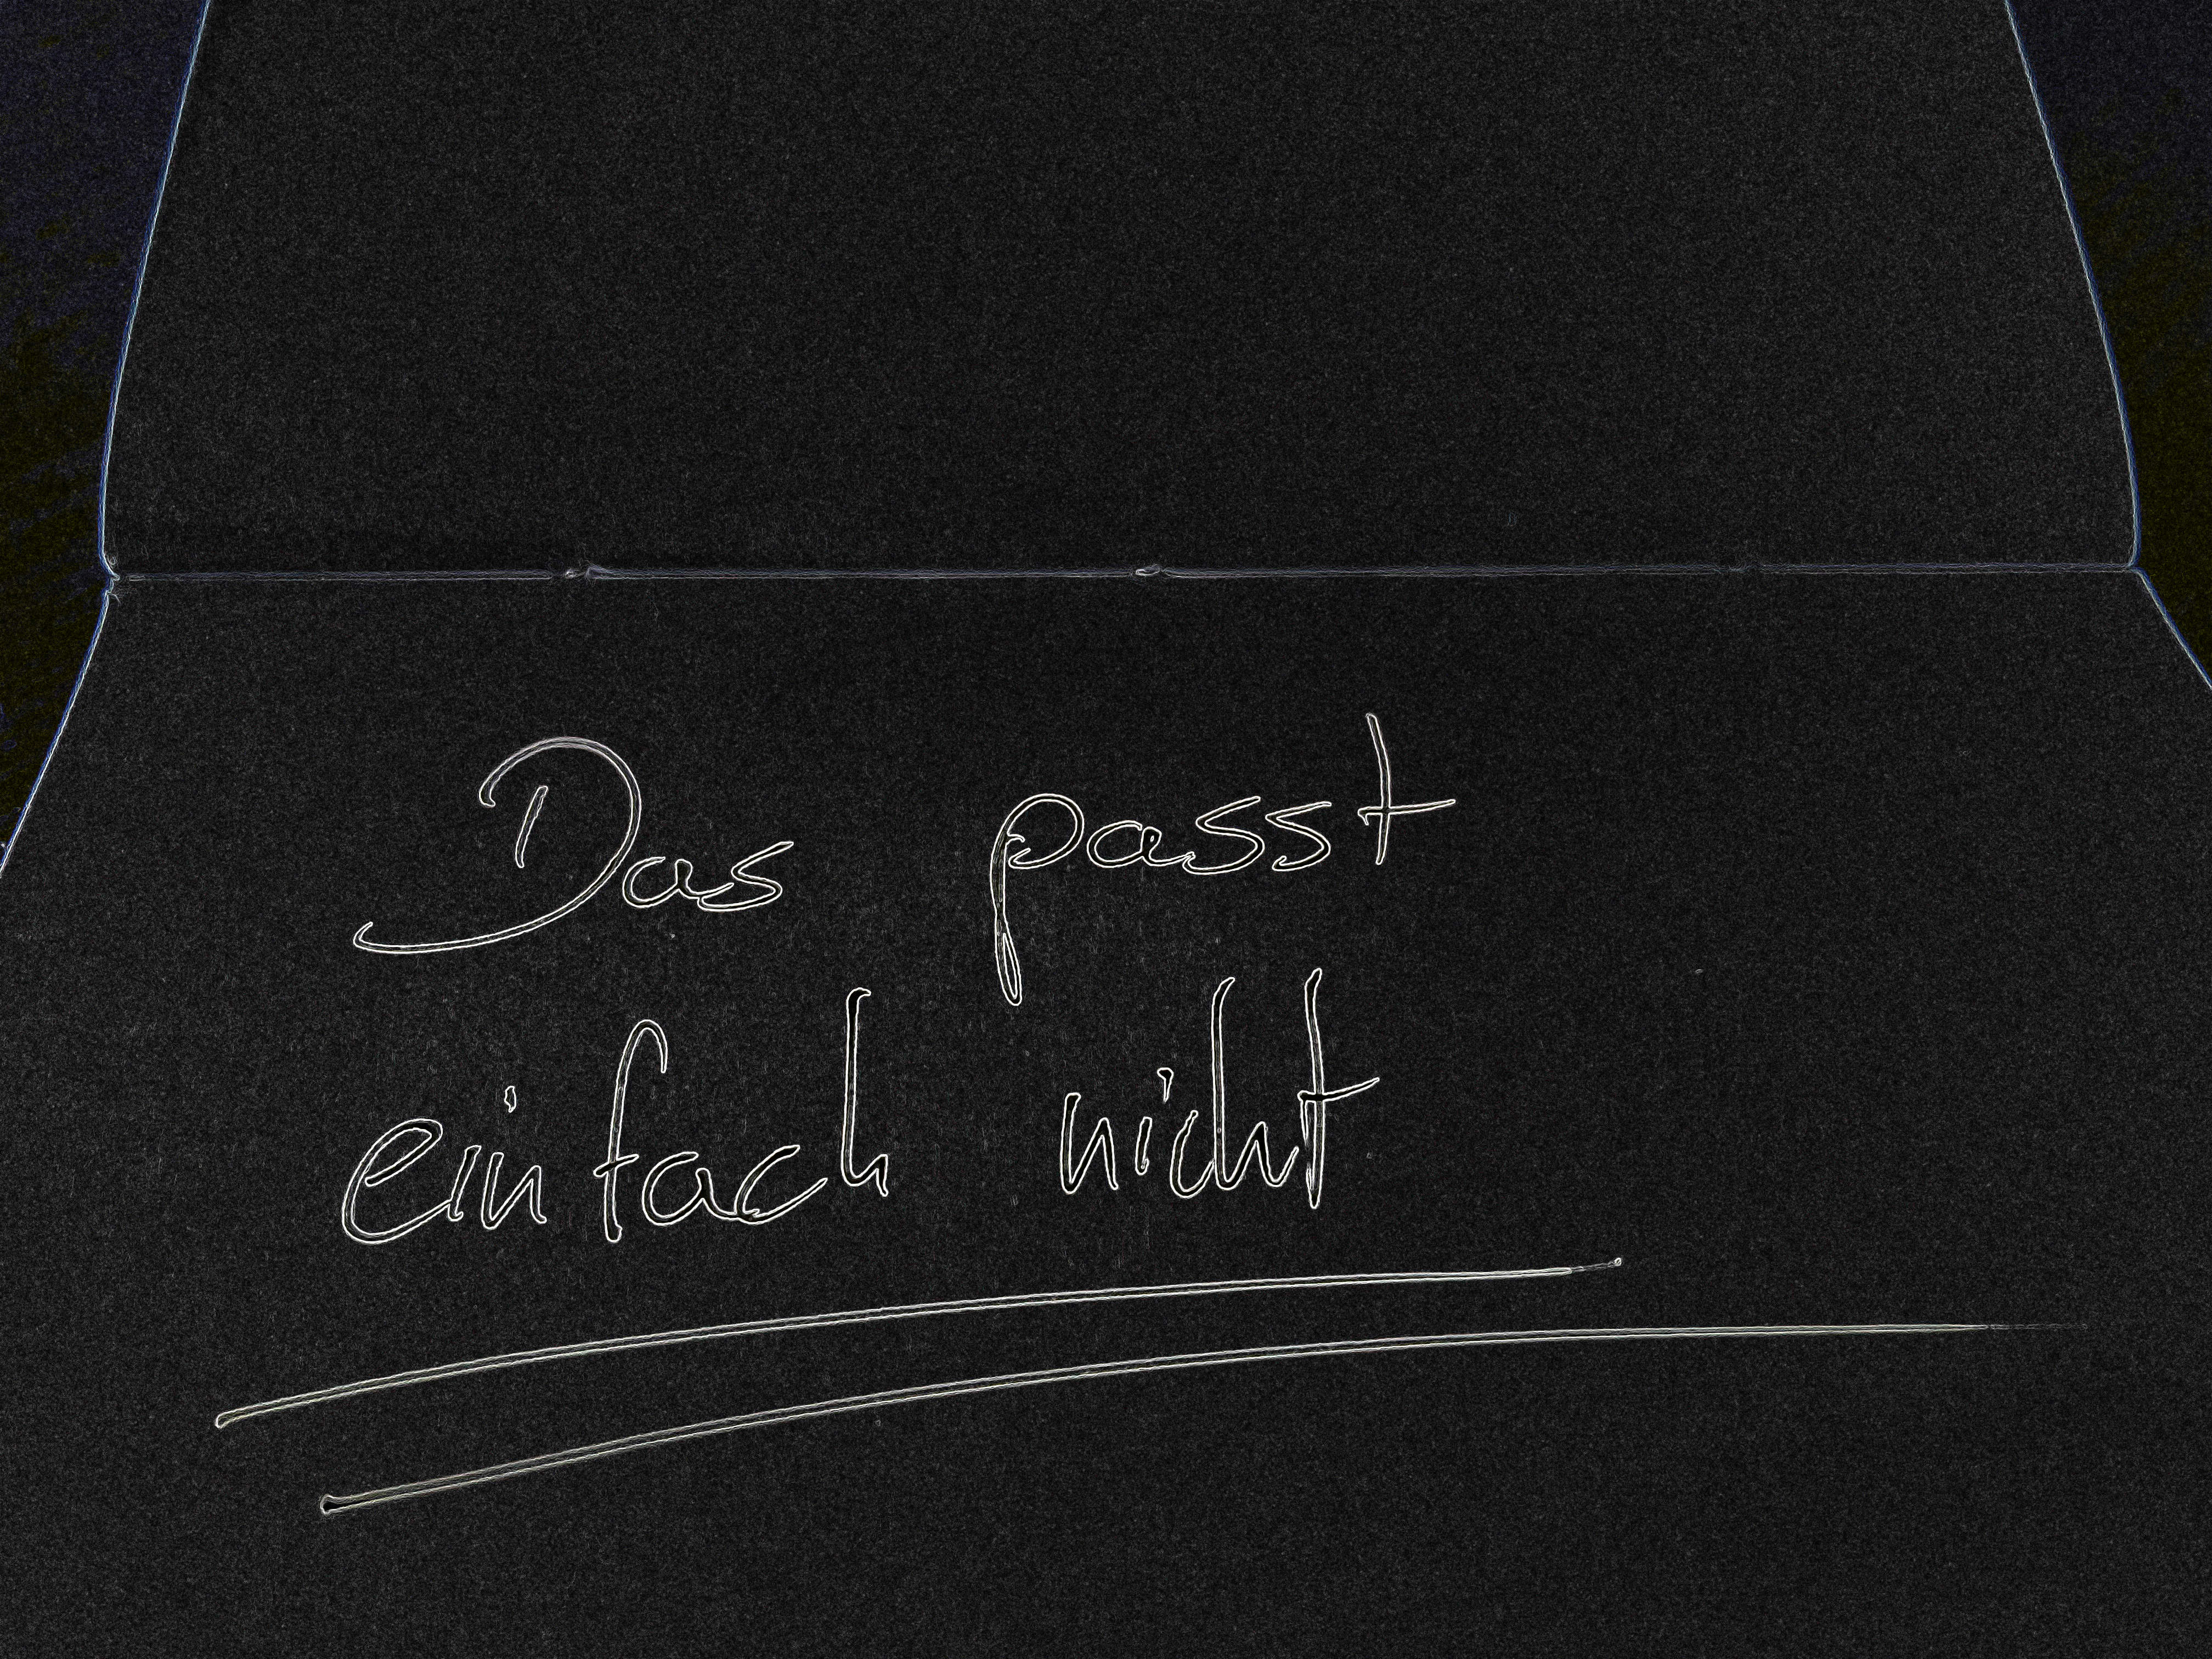 Das passt
einfach nicht